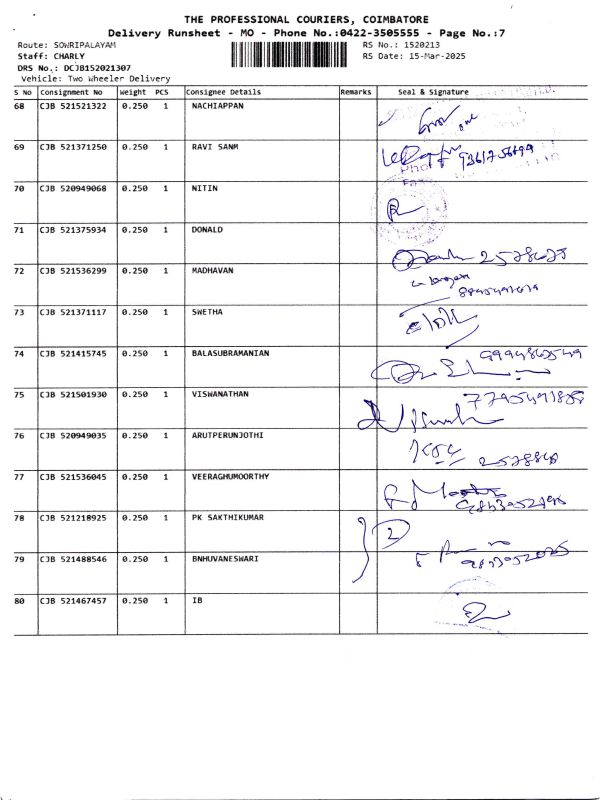 THE PROFESSIONAL COURIERS, COIMBATORE
Delivery Runsheet - MO - Phone No.:0422-3505555 - Page No.:7
Route: SOWRIPALAYAM RS No.: 1520213
Staff: CHARLY RS Date: 15-Mar-2025
DRS No.: DCJB1S2021307
Vehicle: Two Wheeler Delivery
S No Consignment No Weight PCS Consignee Details Remarks Seal & Signature
68 CJB 521521322 0.250 1 NACHIAPPAN
69 CJB 521371250 0.250 1 RAVI SANM
70 CJB 520949068 0.250 1 NITIN
71 CJB 521375934 0.250 1 DONALD
72 CJB 521536299 0.250 1 MADHAVAN
73 CJB 521371117 0.250 1 SWETHA
74 CJB 521415745 0.250 1 BALASUBRAMANIAN
75 CJB 521501930 0.250 1 VISWANATHAN
76 CJB 520949035 0.250 1 ARUTPERUNJOTHI
77 CJB 521536045 0.250 1 VEERAGHUMOORTHY
78 CJB 521218925 0.250 1 PK SAKTHIKUMAR 2
79 CJB 521488546 0.250 1 BNHUVANESWARI
80 CJB 521467457 0.250 1 IB